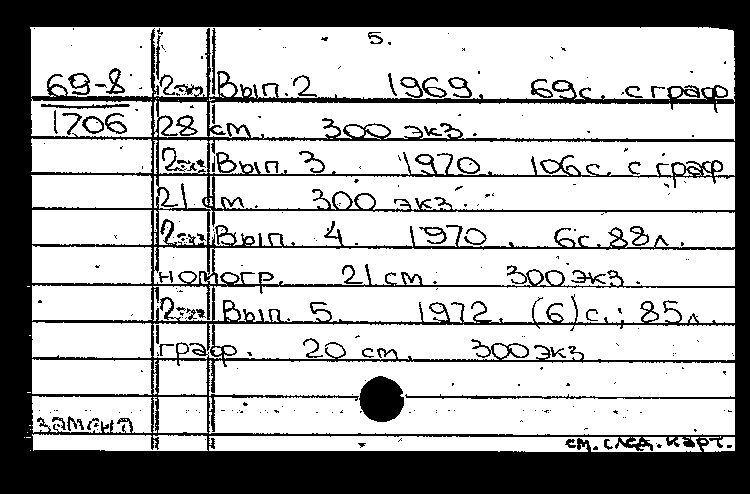 5.
69-8 2экз Вып. 2. 1969. 69с. с граф
1706 28 см. 300 экз.
2экз Вып. 3. 1970. 106с. с граф
21 см. 300 экз.
2экз Вып. 4. 1970. 6с. 88л.
номогр. 21 см. 300 экз.
2экз Вып. 5. 1972. (6)с.; 85л.
граф. 20 см. 300 экз
замена
см. след. карт.